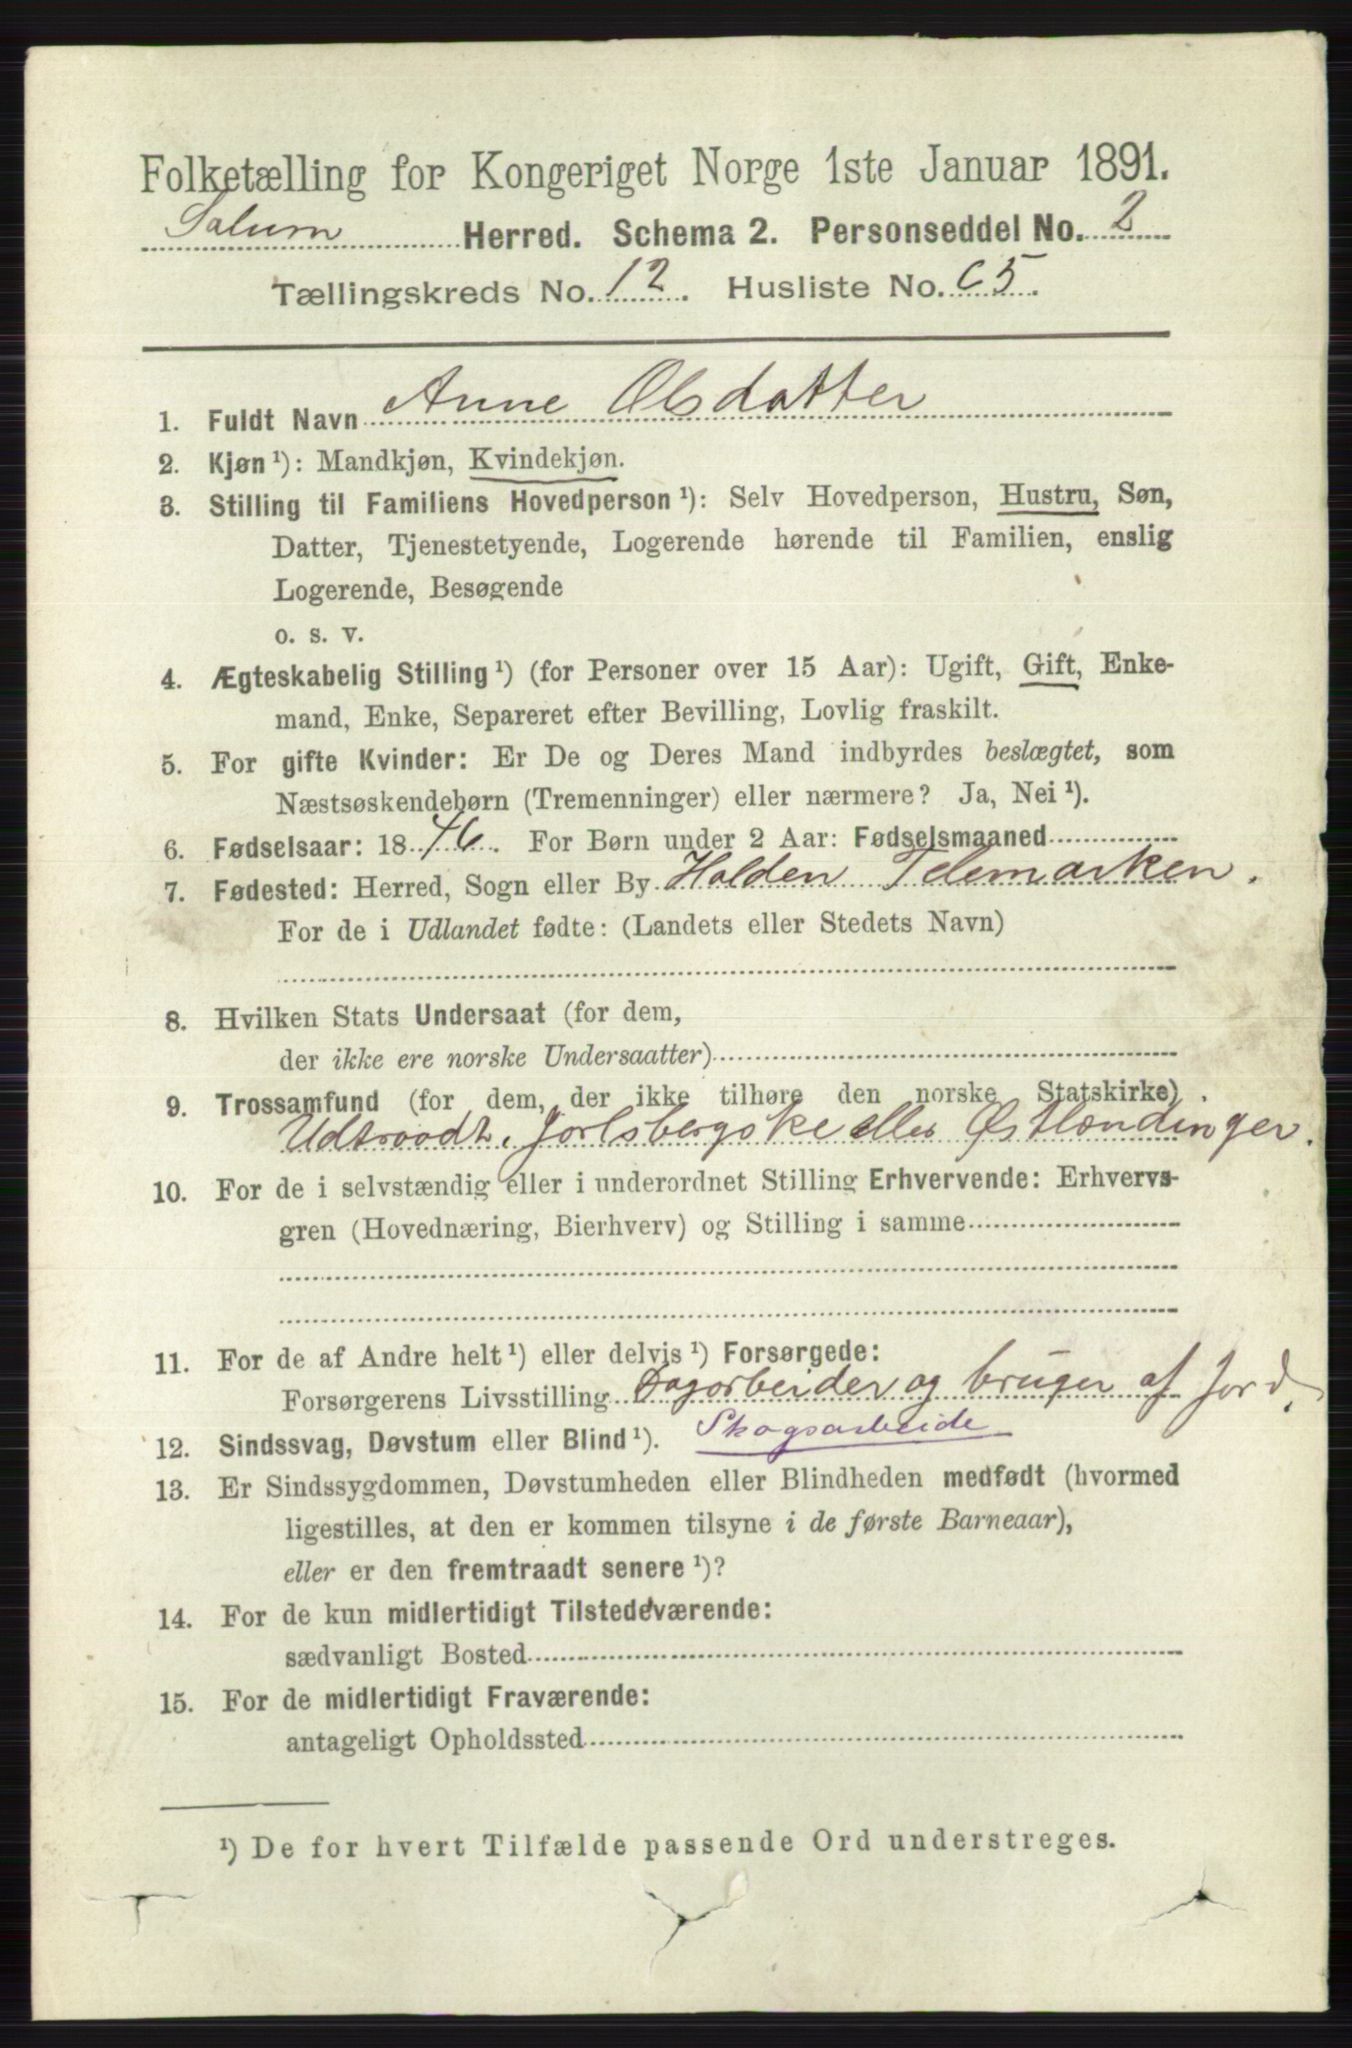 Folketælling for Kongeriget Norge 1ste Januar 1891.
Solum Herred. Schema 2. Personseddel No. 2
Tællingskreds No. 12. Husliste No. 65.
1. Fuldt Navn Anne Olsdatter
2. Kjøn ¹): Mandkjøn, Kvindekjøn.
3. Stilling til Familiens Hovedperson ¹): Selv Hovedperson, Hustru, Søn,
Datter, Tjenestetyende, Logerende hørende til Familien, enslig
Logerende, Besøgende
o. s. v.
4. Ægteskabelig Stilling ¹) (for Personer over 15 Aar): Ugift, Gift, Enke-
mand, Enke, Separeret efter Bevilling, Lovlig fraskilt.
5. For gifte Kvinder: Er De og Deres Mand indbyrdes beslægtet, som
Næstsøskendebørn (Tremenninger) eller nærmere? Ja, Nei ¹).
6. Fødselsaar: 1846. For Børn under 2 Aar: Fødselsmaaned
7. Fødested: Herred, Sogn eller By Holden Telemarken.
For de i Udlandet fødte: (Landets eller Stedets Navn)
8. Hvilken Stats Undersaat (for dem,
der ikke ere norske Undersaatter)
9. Trossamfund (for dem, der ikke tilhøre den norske Statskirke)
Udtraadt. Jarlsbergske eller Østlændinger.
10. For de i selvstændig eller i underordnet Stilling Erhvervende: Erhvervs-
gren (Hovednæring, Bierhverv) og Stilling i samme
11. For de af Andre helt ¹) eller delvis ¹) Forsørgede:
Forsørgerens Livsstilling Dagarbeider og bruger af Jord.
12. Sindssvag, Døvstum eller Blind ¹). Skogsarbeide
13. Er Sindssygdommen, Døvstumheden eller Blindheden medfødt (hvormed
ligestilles, at den er kommen tilsyne i de første Barneaar),
eller er den fremtraadt senere ¹)?
14. For de kun midlertidigt Tilstedeværende:
sædvanligt Bosted
15. For de midlertidigt Fraværende:
antageligt Opholdssted
¹) De for hvert Tilfælde passende Ord understreges.